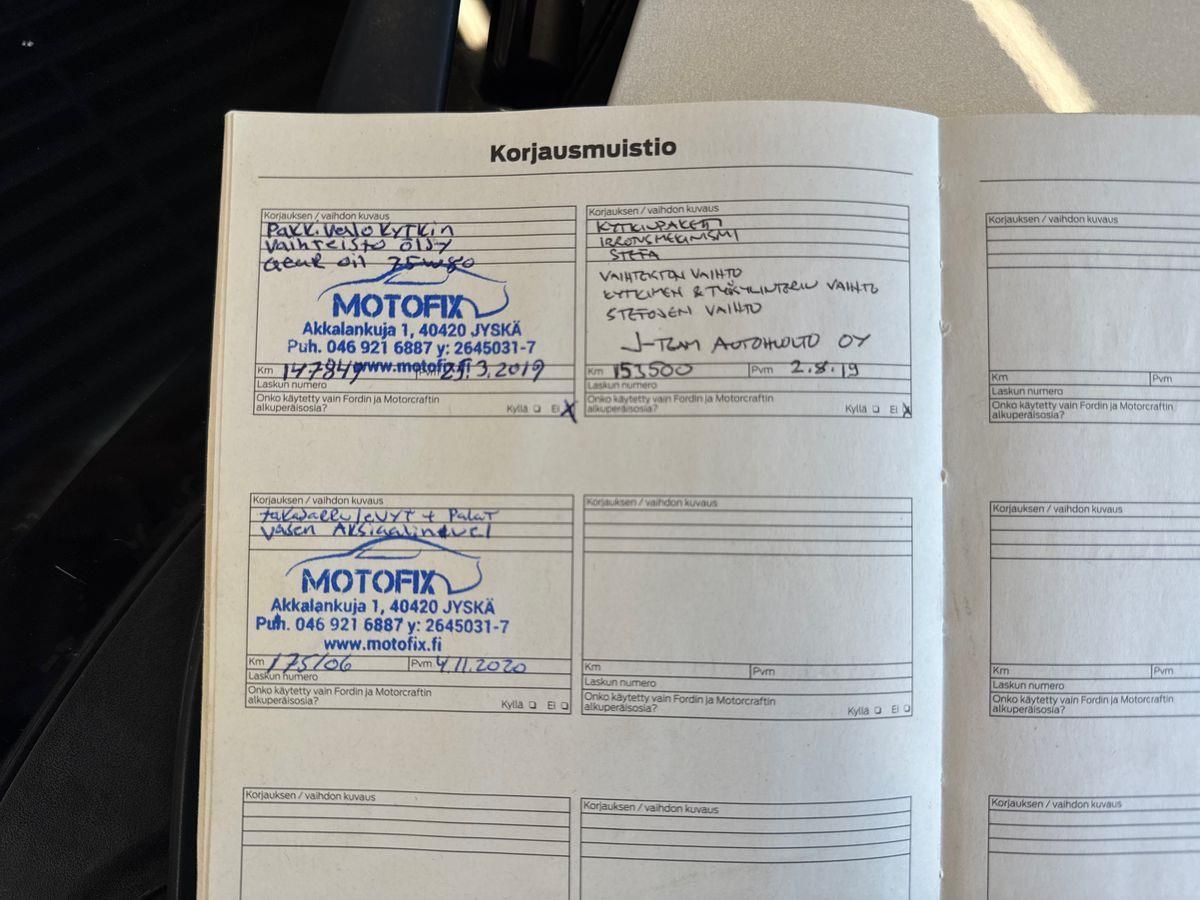 Korjausmuistio
Korjauksen / vaihdon kuvaus
Pakkivalokytkin
vaihteisto öljy
Gear oil 75w80
MOTOFIX
Akkalankuja 1, 40420 JYSKÄ
Puh. 046 921 6887 y: 2645031-7
www.motofix.fi
Km 147849 Pvm 25.3.2019
Laskun numero
Onko käytetty vain Fordin ja Motorcraftin
alkuperäisosia? Kyllä Ei X
Korjauksen / vaihdon kuvaus
KYTKINPAKETTI
IRROTUSMEKANISMI
STEFA
VAIHTEISTON VAIHTO
KYTKIMEN & TYÖSYLINTERIN VAIHTO
STEFOJEN VAIHTO
J-TEAM AUTOHUOLTO OY
Km 153500 Pvm 2.8.19
Laskun numero
Onko käytetty vain Fordin ja Motorcraftin
alkuperäisosia? Kyllä Ei X
Korjauksen / vaihdon kuvaus
Km Pvm
Laskun numero
Onko käytetty vain Fordin ja Motorcraftin
alkuperäisosia?
Korjauksen / vaihdon kuvaus
takajarrulevyt + Palat
vasen Aksiaalinivel
MOTOFIX
Akkalankuja 1, 40420 JYSKÄ
Puh. 046 921 6887 y: 2645031-7
www.motofix.fi
Km 175106 Pvm 4.11.2020
Laskun numero
Onko käytetty vain Fordin ja Motorcraftin
alkuperäisosia? Kyllä Ei
Korjauksen / vaihdon kuvaus
Km Pvm
Laskun numero
Onko käytetty vain Fordin ja Motorcraftin
alkuperäisosia? Kyllä Ei
Korjauksen / vaihdon kuvaus
Km Pvm
Laskun numero
Onko käytetty vain Fordin ja Motorcraftin
alkuperäisosia?
Korjauksen / vaihdon kuvaus
Korjauksen / vaihdon kuvaus
Korjauksen / vaihdon kuvaus